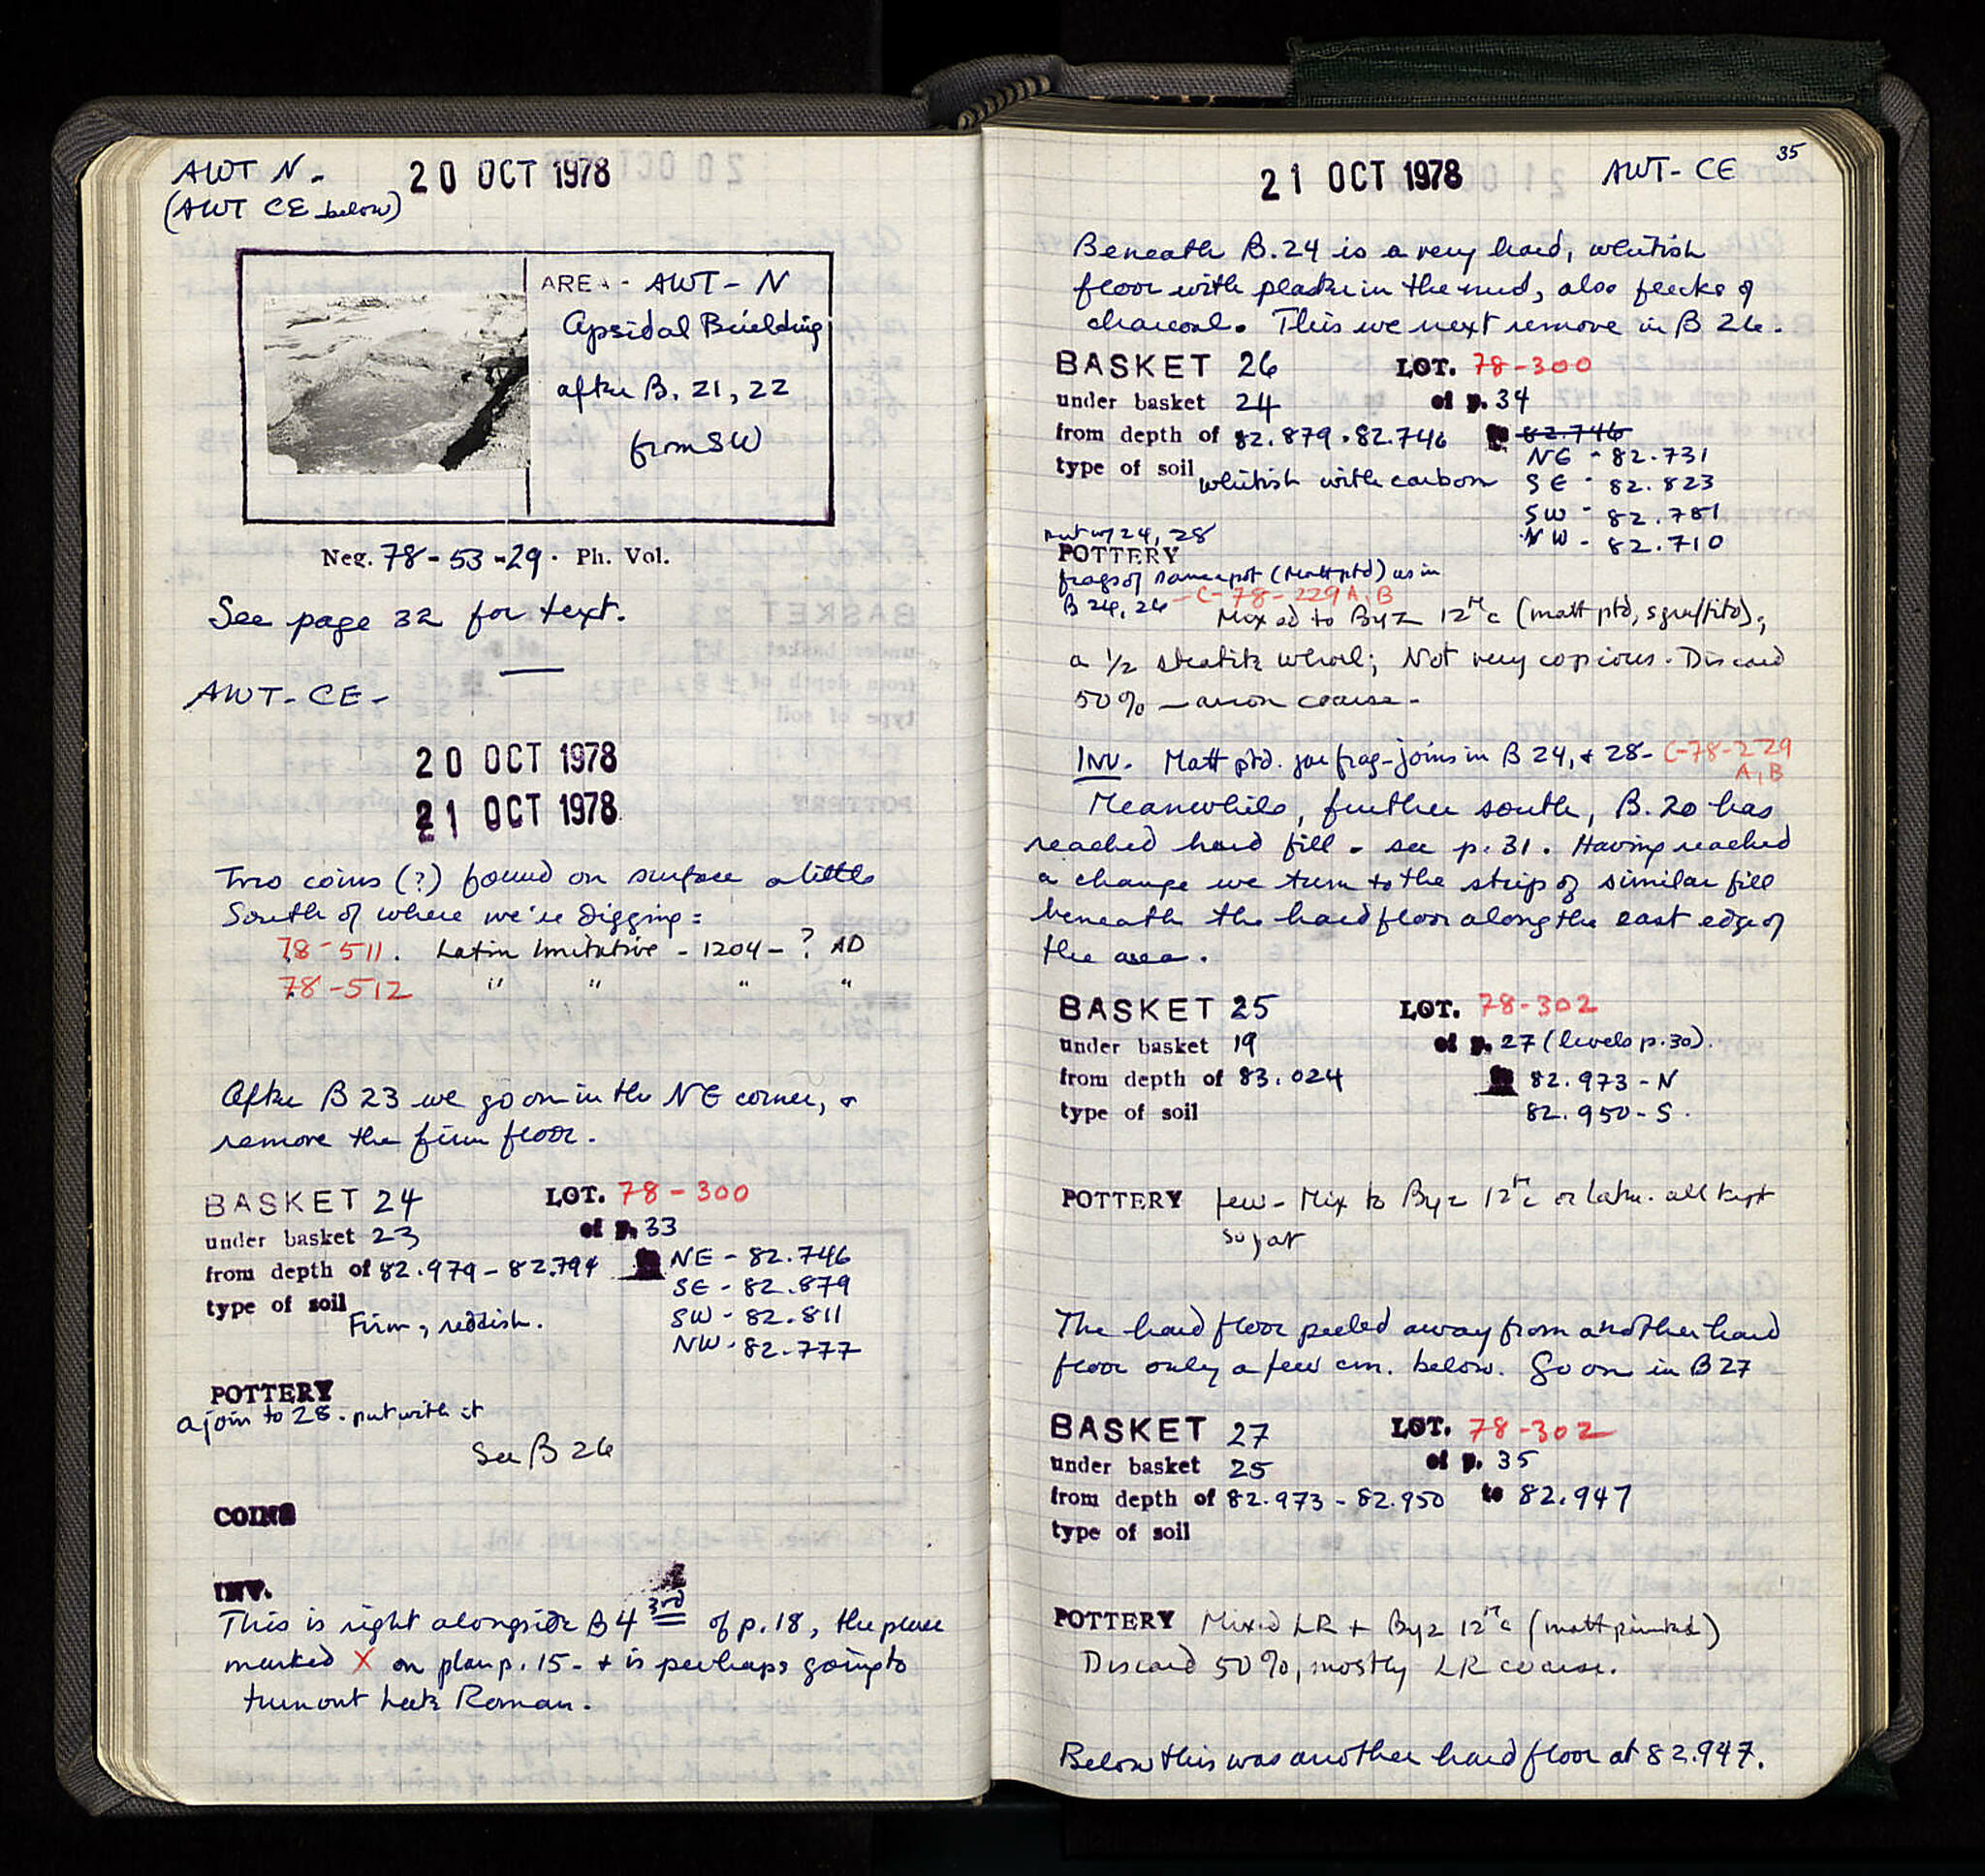 AWT N -
(AWT CE below)
20 OCT 1978
AREA - AWT - N
Apsidal Building
after B. 21, 22
from SW
Neg. 78 - 53 - 29 . Ph. Vol.
See page 32 for text.
AWT - CE -
20 OCT 1978
21 OCT 1978
Two coins (?) found on surface a little
South of where we're digging :
78 - 511 . Latin Imitative - 1204 - ? AD
78 - 512 " " " "
After B 23 we go on in the NE corner, +
remove the firm floor .
BASKET 24 LOT. 78 - 300
under basket 23 of p. 33
from depth of 82.979 - 82.794 NE - 82.746
SE - 82.879
type of soil Firm, reddish. SW - 82.811
NW - 82.777
POTTERY
a join to 28 . put with it
See B 26
COINS
INV.
This is right alongside B 4 3rd of p. 18, the place
marked X on plan p. 15 - + is perhaps going to
turn out Late Roman .
35
21 OCT 1978 AWT - CE
Beneath B. 24 is a very hard, whitish
floor with plaster in the mud, also flecks of
charcoal. This we next remove in B 26 .
BASKET 26 LOT. 78 - 300
under basket 24 of p. 34
from depth of 82.879 . 82.746 82.746
NE - 82.731
type of soil whitish with carbon SE - 82.823
SW - 82.781
NW - 82.710
put w/ 24, 28
POTTERY
frags of same pot (matt ptd) as in
B 24, 26 - C - 78 - 229 A, B
Mixed to Byz 12th c (matt ptd, sgraffito);
a 1/2 steatite whorl; Not very copious. Discard
50% coarse -
INV. Matt ptd. jar frag - joins in B 24, + 28 - C-78-229
A, B
Meanwhile, further south, B. 20 has
reached hard fill - see p. 31 . Having reached
a change we turn to the strip of similar fill
beneath the hard floor along the east edge of
the area .
BASKET 25 LOT. 78 - 302
under basket 19 of p. 27 (levels p. 30).
from depth of 83.024 82.973 - N
type of soil 82.950 - S .
POTTERY few - Mix to Byz 12th c or later. all kept
so far
The hard floor peeled away from another hard
floor only a few cm. below. Go on in B 27
BASKET 27 LOT. 78 - 302
under basket 25 of p. 35
from depth of 82.973 - 82.950 to 82.947
type of soil
POTTERY Mixed LR + Byz 12th c (matt painted)
Discard 50%, mostly LR coarse .
Below this was another hard floor at 82.947.